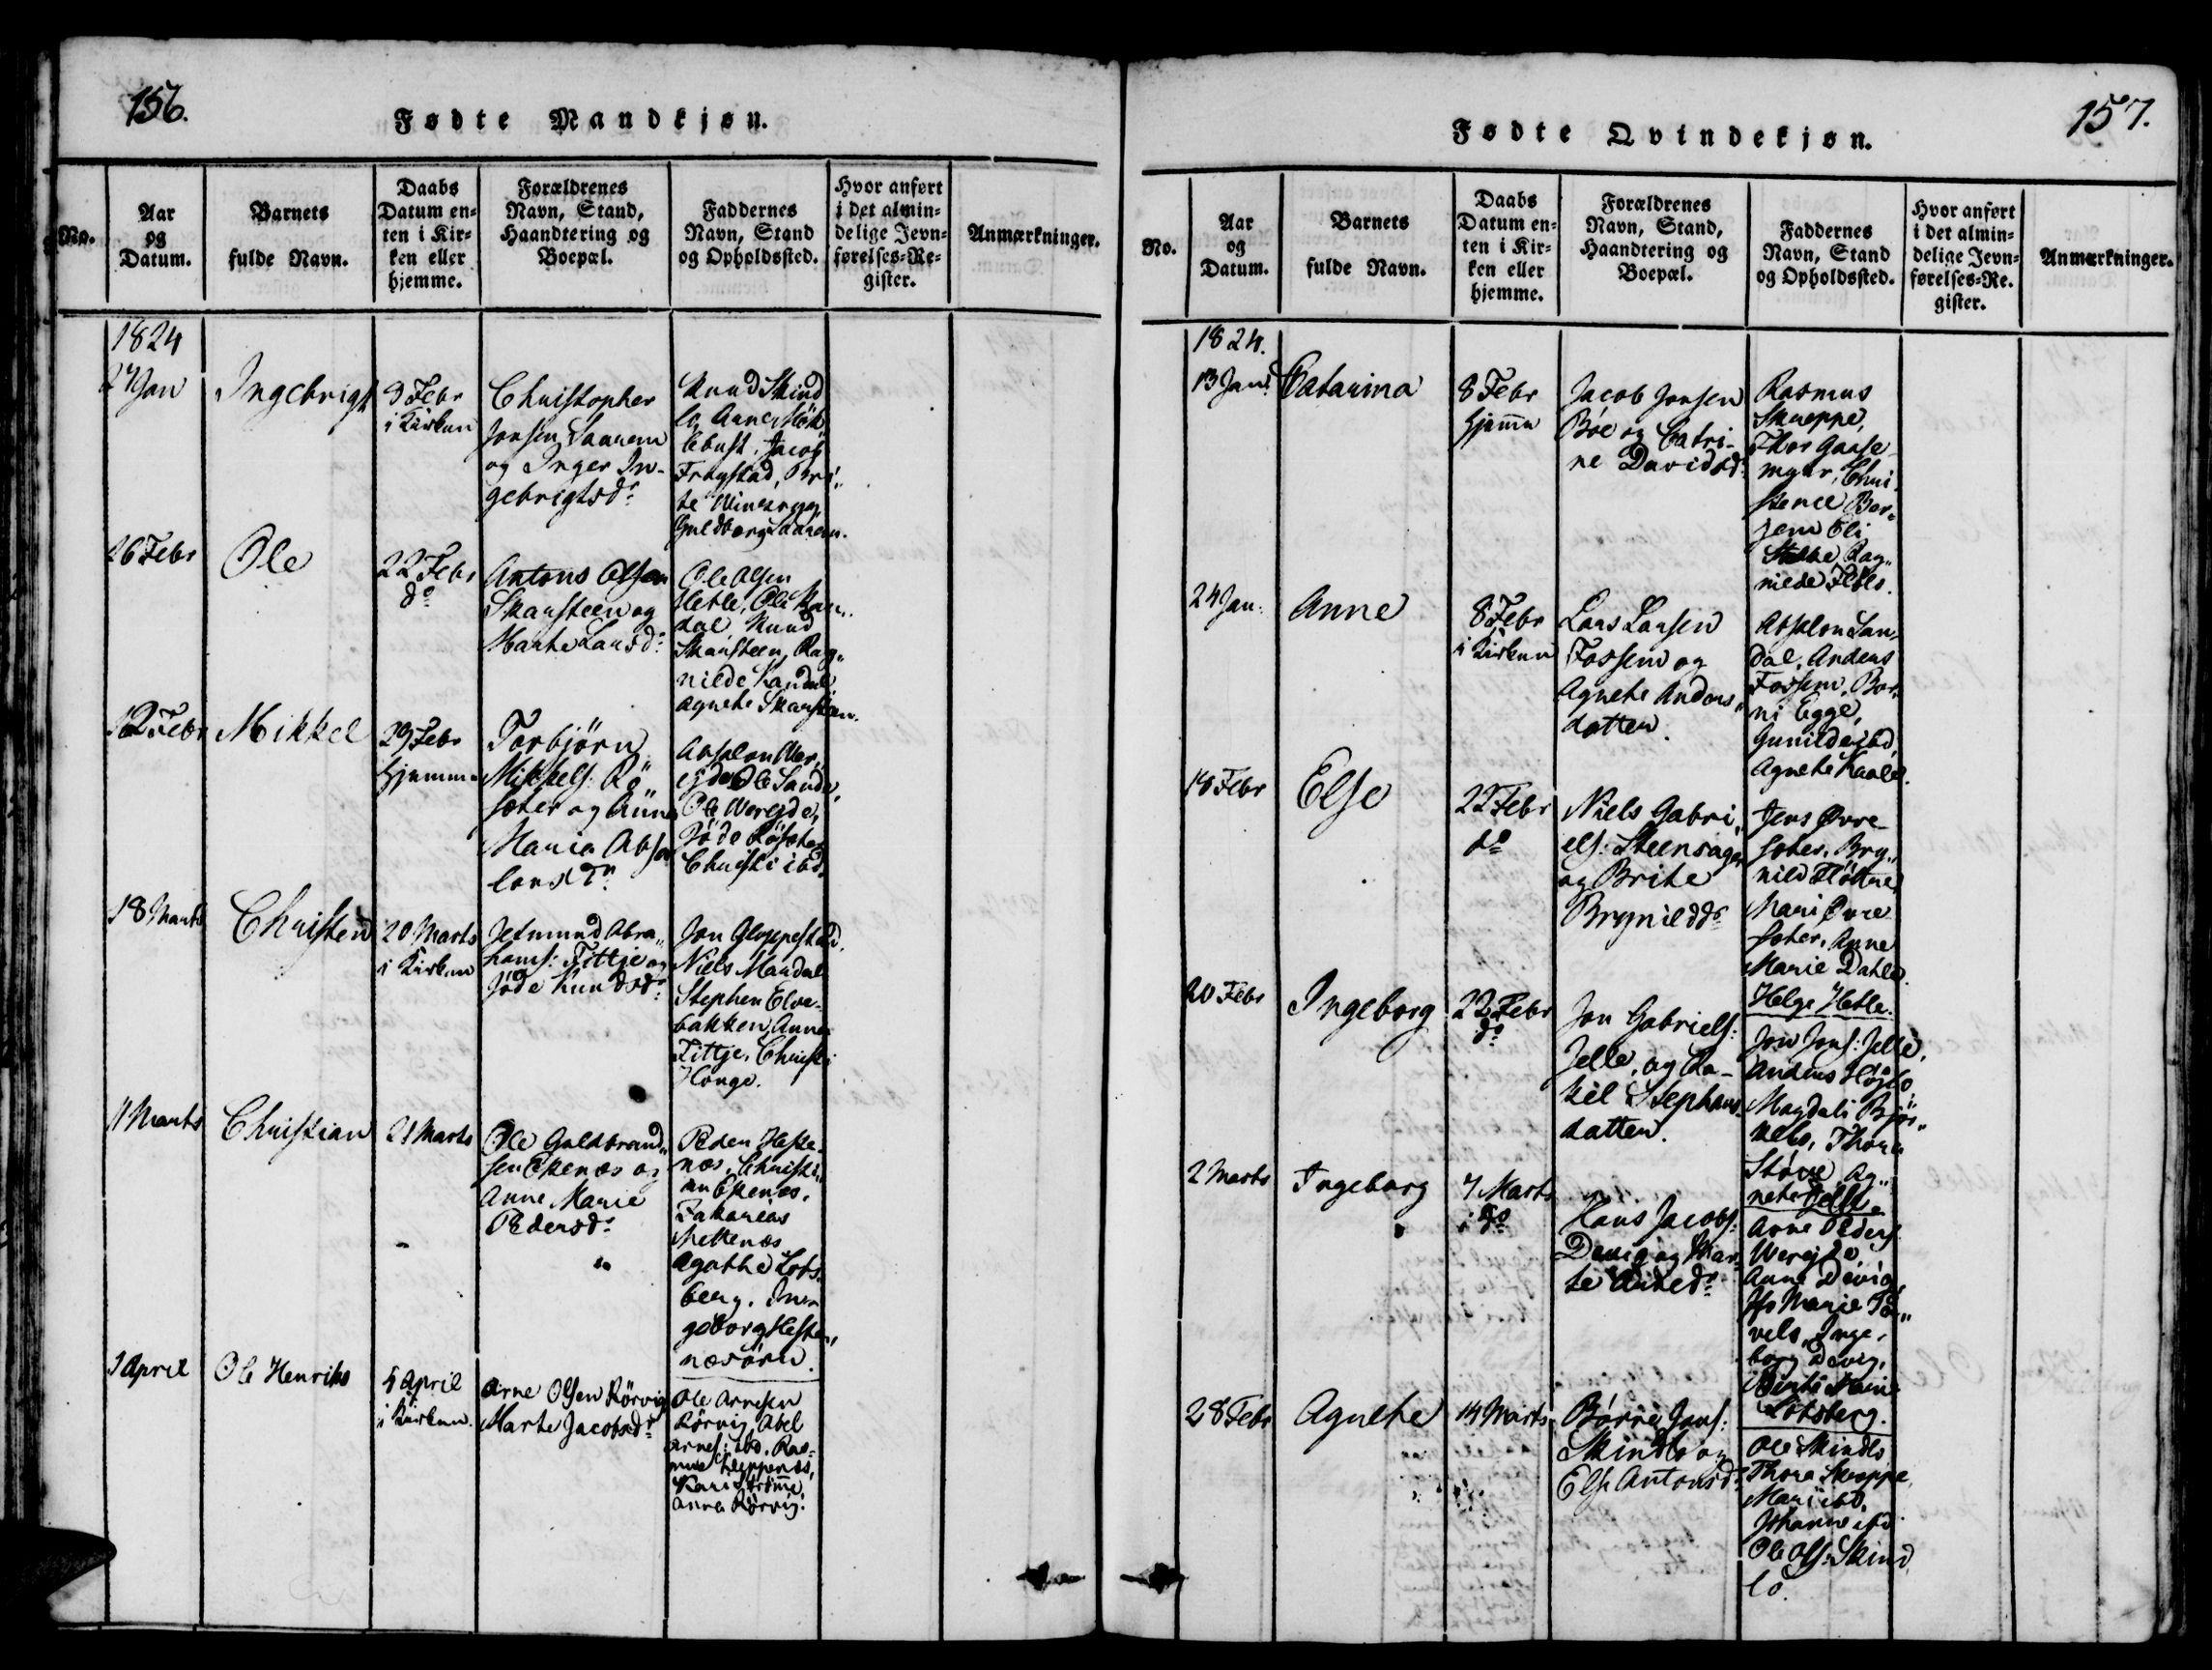 156.
Fødte Mandkjøn.
No.
Aar
og
Datum.
Barnets
fulde Navn.
Daabs
Datum en-
ten i Kir-
ken eller
hjemme.
Forældrenes
Navn, Stand,
Haandtering og
Boepæl.
Faddernes
Navn, Stand
og Opholdssted.
Hvor anført
i det almin-
delige Jevn-
førelses-Re-
gister.
Anmærkninger.
1824
27 Jan
Ingebrigt
9 Febr
i Kirken
Christopher
Jonsen Saarem
og Inger In-
gebrigtsdr
Knud Skind
Jacob
Guldborg Saarem.
26 Febr
Ole
22 Febr
do
Antons Olsen
Skarsteen og
Marte Larsdr
Ole Olsen
Hetle, Ole
dal Knud
Skarsteen, Rag-
nilde Sandal
Agnete Skarsteen.
12 Febr
Mikkel
29 Febr
hjemme
Torbjörn
Mikkels: Rö
seter og Anne
Maria Abso
lonsdr
Absalon Wer
ejde Ole Sande,
Ole Werejde,
Jöde Röseter
Christi ibd.
18 Marts
Christen
20 Marts
i Kirken
Jetmund Abra
hams: Tittje og
Jöde Knudsdr
Jon Gloppestad.
Niels Mandal
Stephen Elve-
bakken, Anne
Tittje, Christi
Honge.
11 Marts
Christian
21 Marts
Ole Guldbrand
sen Espenæs og
Anne Marie
Pedersdr
Peder Heste-
næs, Christi-
an Espenæs,
Zakarias
Hettenæs
Agathe Lots-
berg. In-
geborg Hesten
næsøren.
1 April
Ole Henriks
4 April
i Kirken.
Arne Olsen Rörvig
Marte Jacobsdr
Ole Arnesen
Rörvig, Abel
Arnes: ibd. Ras-
mus
Kari Strömme
Anna Rörvig.
157.
Fødte Qvindekjøn.
No.
Aar
og
Datum.
Barnets
fulde Navn.
Daabs
Datum en-
ten i Kir-
ken eller
hjemme.
Forældrenes
Navn, Stand,
Haandtering og
Boepæl.
Faddernes
Navn, Stand
og Opholdssted.
Hvor anført
i det almin-
delige Jevn-
førelses-Re.
gister.
Anmærkninger.
1824.
13 Jan:
Catarina
8 Febr
hjemme
Jacob Jonsen
Böe og Catri-
ne Davidsdr
Rasmus
Skreppe,
Thor Gaase-
myhr, Chri-
stence Bor-
jem Eli
Rag-
nilde
24 Jan:
Anne
8 Febr
i Kirken
Lars Larsen
Fossem og
Agnete Anders
datter.
Absalon San
dal, Anders
Fossem, Bor
ni Egge,
Gunilde ibd,
Agnete Kaale.
18 Febr
Else
22 Febr
do
Niels Gabri
els: Steensager
og Brite
Brynildsdr
Jens Övre-
seter, Bry-
nild Flöttre,
Mari Övre
seter, Anne
Marie Dahle
Helge Hetle.
20 Febr
Ingeborg
22 Febr
do
Jon Gabriels:
Jelle, og Ra-
kil Stephans
datter.
Jon Jons: Jelle,
Anders
Magdali
Thore
Ag-
nete Jelle.
2 Marts
Ingeborg
7 Marts
i do
Hans Jacobs:
Devig og Mar
te
Arne Peders
Werejde,
Anne Devig,
Marie
Inge-
borg Devig,
Lotsberg.
28 Febr
Agnethe
14 Marts
Börre Jons:
Skindlo og
Else Antonsdr
Ole Skindlo
Thore Skreppe,
Mari ibd,
Johanne ibd
Ole Ols: Skind
lo.